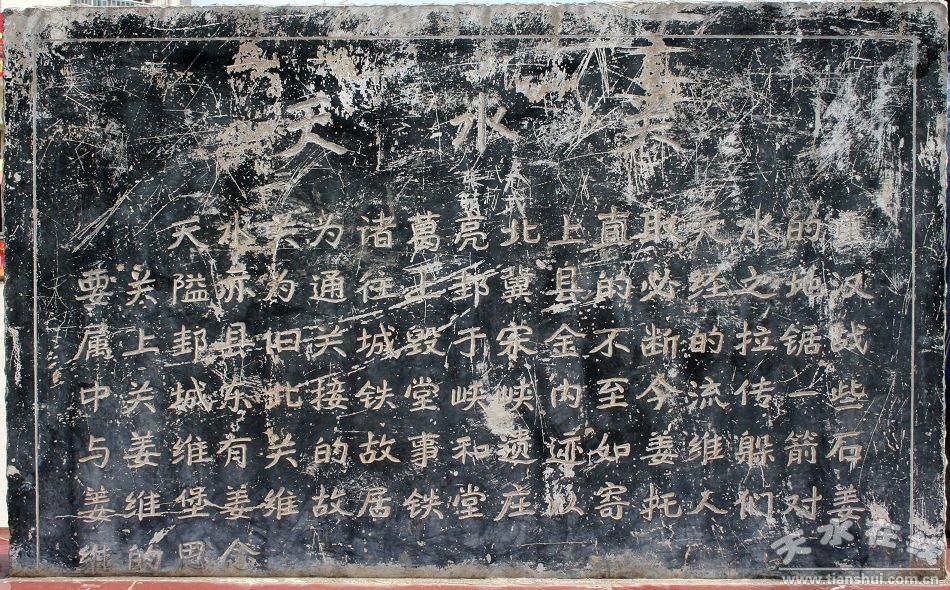 天水关
天水关为诸葛亮北上直取天水的重
要关隘亦为通往上邽冀县的必经之地汉
属上邽县旧关城毁于宋金不断的拉锯战
中关城东北接铁堂峡峡内至今流传一些
与姜维有关的故事和遗迹如姜维躲箭石
姜维堡姜维故居铁堂庄以寄托人们对姜
维的思念
天水在线
www.tianshui.com.cn